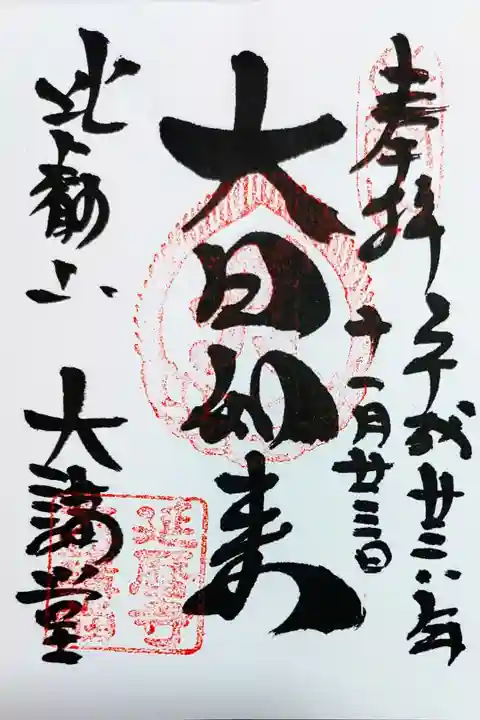 奉拝
平成廿三年
十一月廿三日
大日如来
比叡山
大講堂
延暦寺